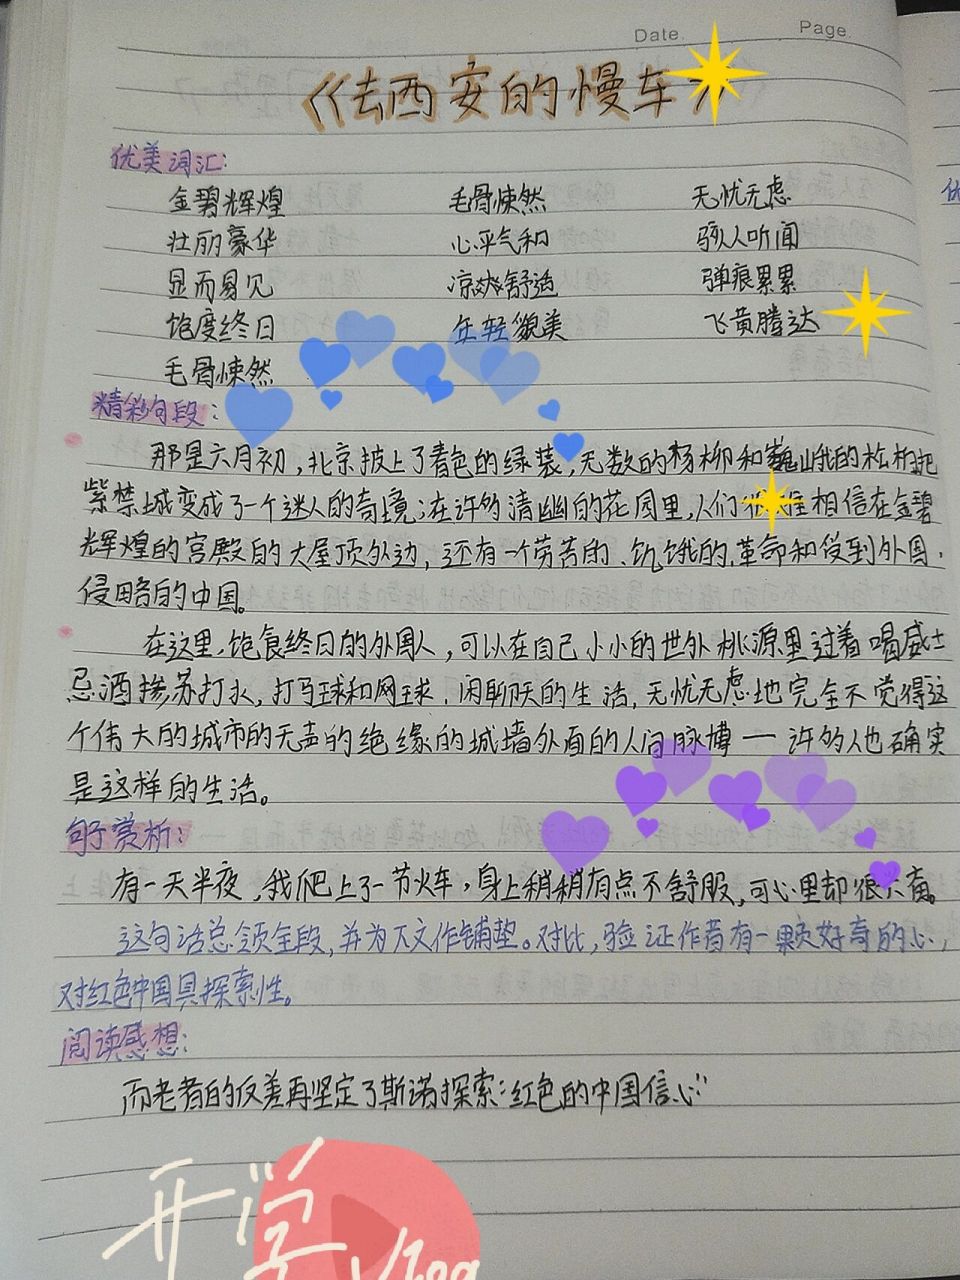 Date. Page.
《去西安的慢车》
优美词汇:
金碧辉煌 毛骨悚然 无忧无虑
壮丽豪华 心平气和 骇人听闻
显而易见 凉爽舒适 弹痕累累
饱度终日 年轻貌美 飞黄腾达
毛骨悚然
精彩句段:
那是六月初,北京披上了青色的绿装,无数的杨柳和巍峨的松柏把
紫禁城变成了一个迷人的奇境;在许多清幽的花园里,人们很难相信在金碧
辉煌的宫殿的大屋顶外边,还有一个劳苦的、饥饿的、革命和受到外国、
侵略的中国。
在这里,饱食终日的外国人,可以在自己小小的世外桃源里过着喝威士
忌酒掺苏打水,打马球和网球、闲聊天的生活,无忧无虑地完全不觉得这
个伟大的城市的无声的绝缘的城墙外面的人间脉搏一许多人也确实
是这样的生活。
句子赏析:
有一天半夜,我爬上了一节火车,身上稍稍有点不舒服,可心里却很
这句话总领全段,并为下文作铺垫。对比,验证作者有一颗好奇的心,
对红色中国具探索性。
阅读感想:
而老者的反差再坚定了斯诺探索:红色的中国信心
开学
Vlog